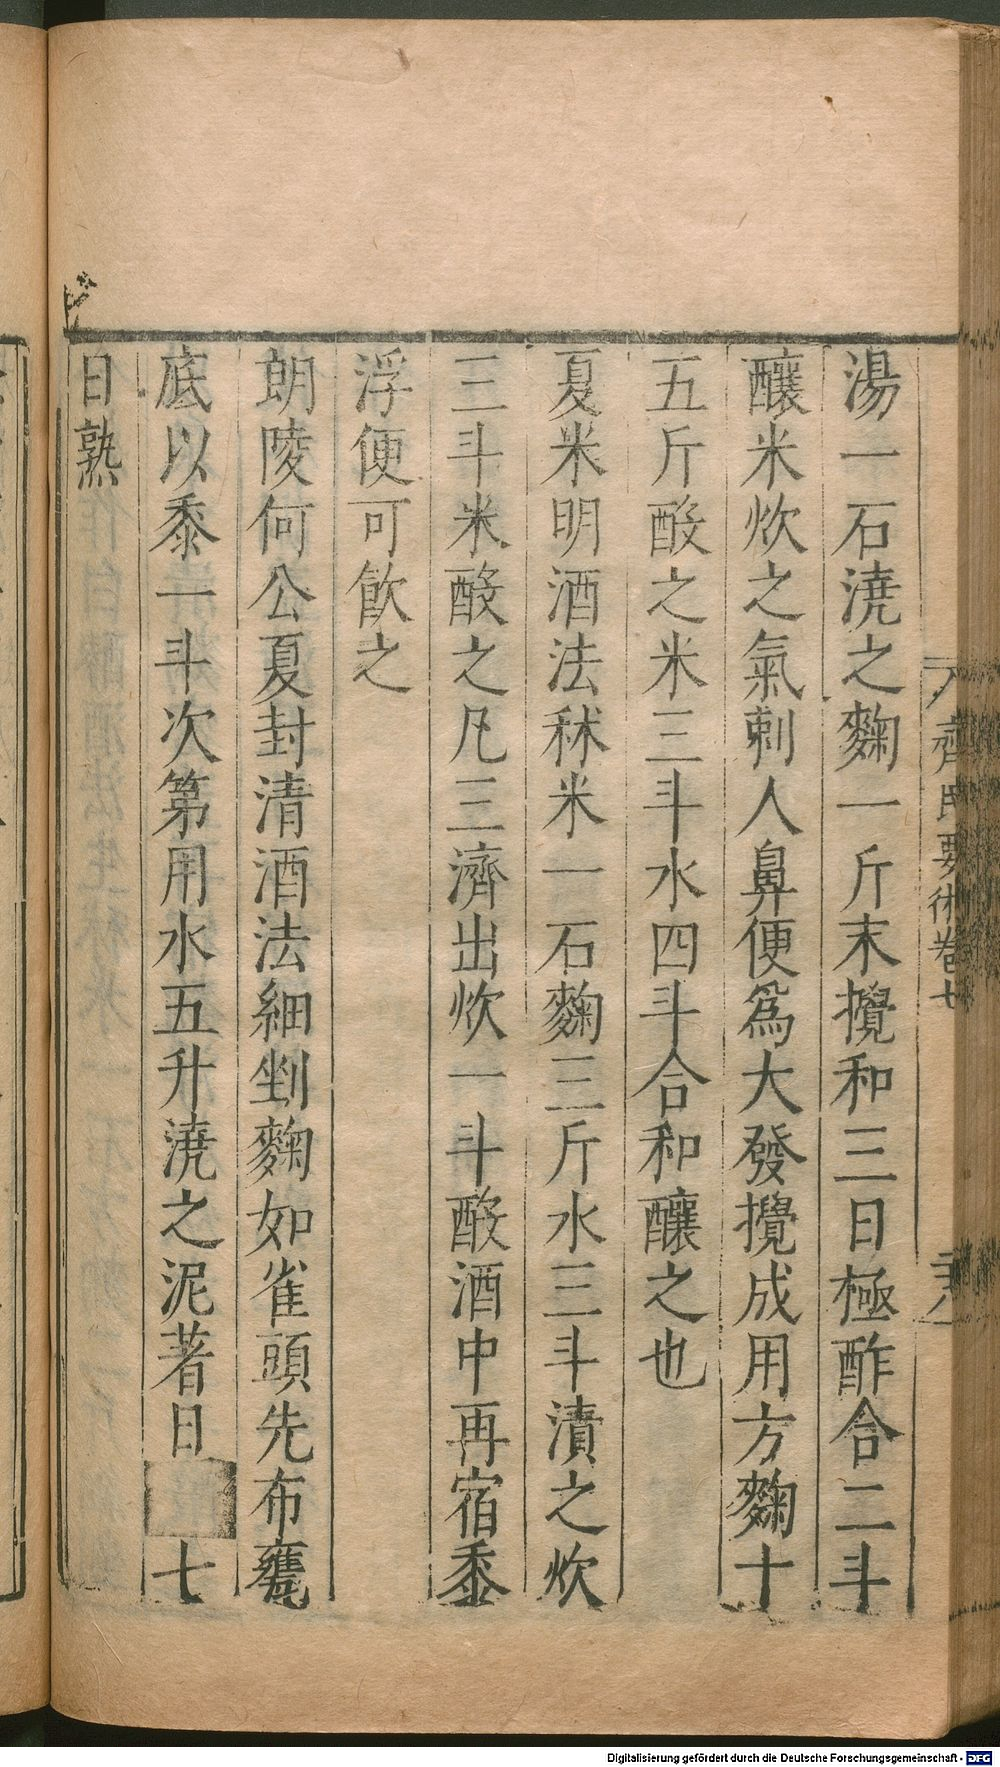 齊民要術卷七
湯一石澆之麴一斤末攪和三日極酢合二斗
釀米炊之氣刺人鼻便爲大發攪成用方麴十
五斤酘之米三斗水四斗合和釀之也
夏米明酒法秫米一石麴三斤水三斗漬之炊
三斗米酘之凡三濟出炊一斗酘酒中再宿黍
浮便可飮之
朗陵何公夏封清酒法細剉麴如雀頭先布甕
底以黍一斗次第用水五升澆之泥著日 七
日熟
Digitalisierung gefördert durch die Deutsche Forschungsgemeinschaft - DFG